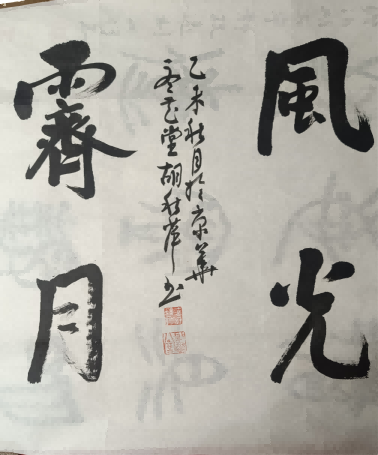 風光
霽月
乙未秋月於京華
堂胡秋萍书